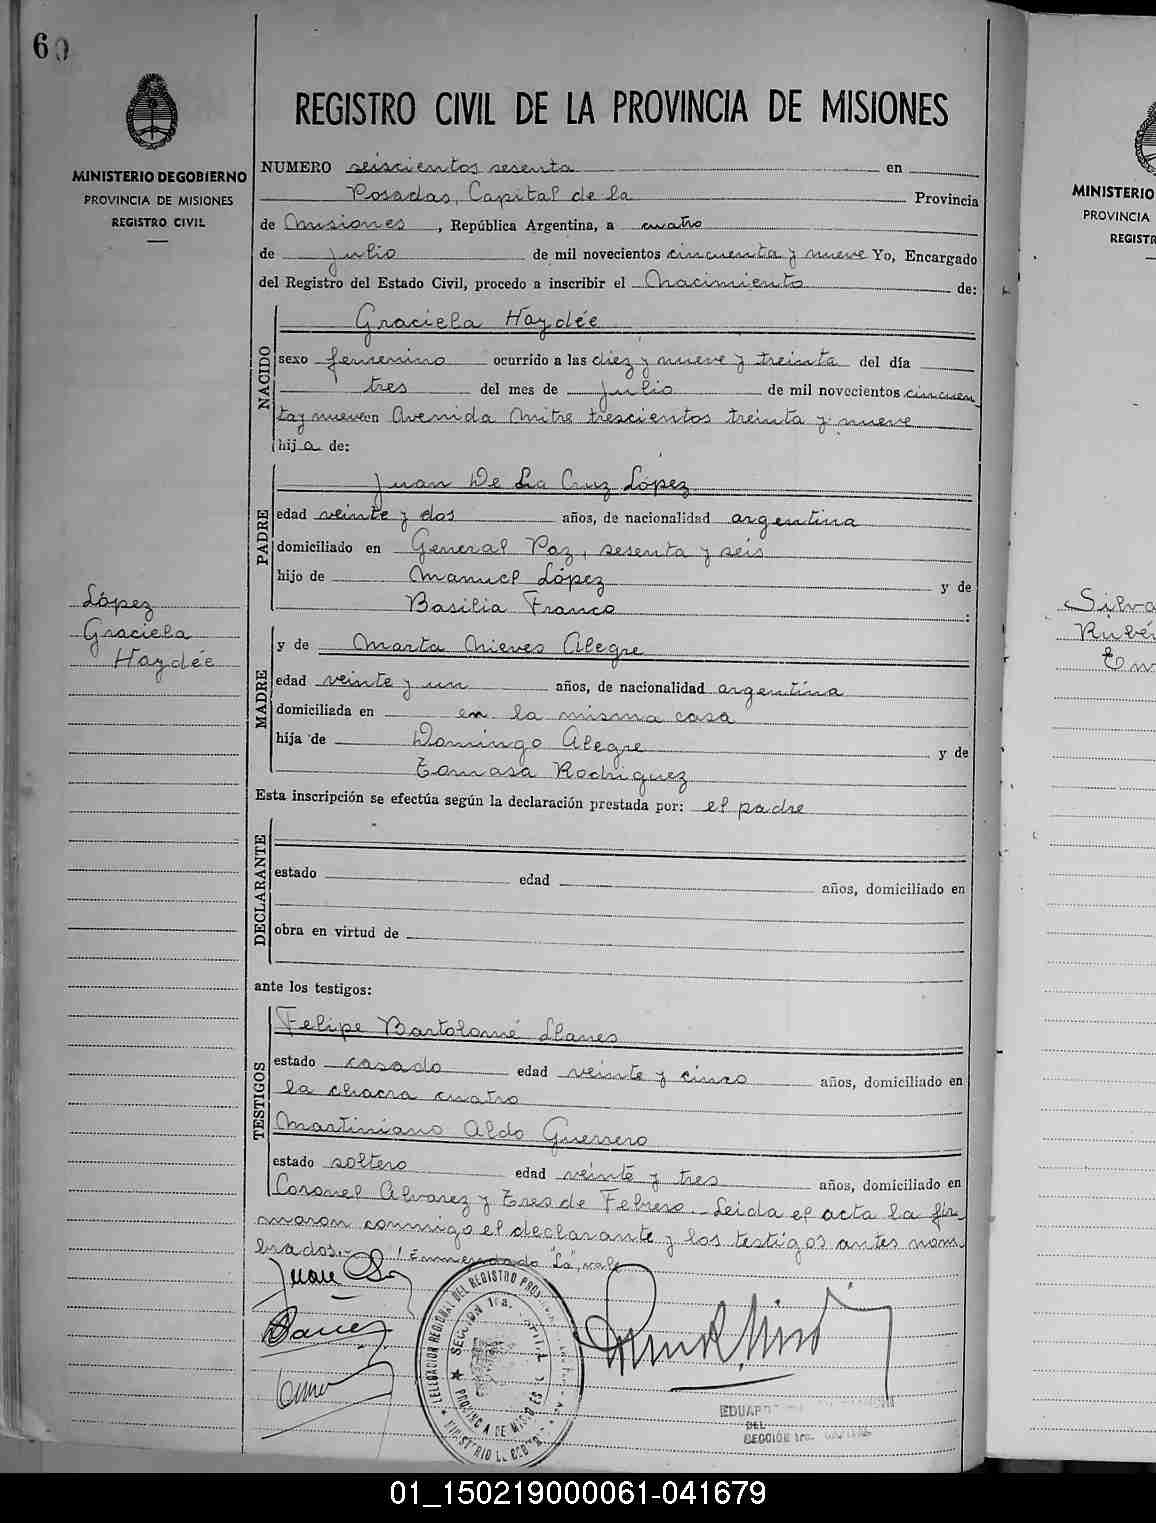 60
MINISTERIO DE GOBIERNO
PROVINCIA DE MISIONES
REGISTRO CIVIL
López
Graciela
Haydée
REGISTRO CIVIL DE LA PROVINCIA DE MISIONES
NUMERO seiscientos sesenta en
Posadas, Capital de la Provincia
de Misiones, República Argentina, a cuatro
de julio de mil novecientos cincuenta y nueve Yo, Encargado
del Registro del Estado Civil, procedo a inscribir el Nacimiento de:
NACIDO
Graciela Haydée
sexo femenino ocurrido a las diez y nueve y treinta del día
tres del mes de julio de mil novecientos cincuen
ta y nueve en Avenida Mitre trescientos treinta y nueve
hija de:
PADRE
Juan De La Cruz López
edad veinte y dos años, de nacionalidad argentina
domiciliado en General Paz, sesenta y seis
hijo de Manuel López y de
Basilia Franco :
MADRE
y de Marta Nieves Alegre
edad veinte y un años, de nacionalidad argentina
domiciliada en en la misma casa
hija de Domingo Alegre y de
Tomasa Rodriguez
Esta inscripción se efectúa según la declaración prestada por: el padre
DECLARANTE
estado edad años, domiciliado en
obra en virtud de
ante los testigos:
TESTIGOS
Felipe Bartolomé Llanes
estado casado edad veinte y cinco años, domiciliado en
la chacra cuatro
Martiniano Aldo Guerrero
estado soltero edad veinte y tres años, domiciliado en
Coronel Alvarez y Tres de Febrero.- Leida el acta la fir-
maron conmigo el declarante y los testigos antes nom-
brados.- Enmendado "La", vale
Juan
DELEGACION REGIONAL DEL REGISTRO
SECCION 1ra.
PROVINCIA DE MISIONES
EDUARDO
DEL
SECCIÓN 1ra.
MINISTERIO
PROVINCIA
REGISTR
Silva
Rubé
01_150219000061-041679